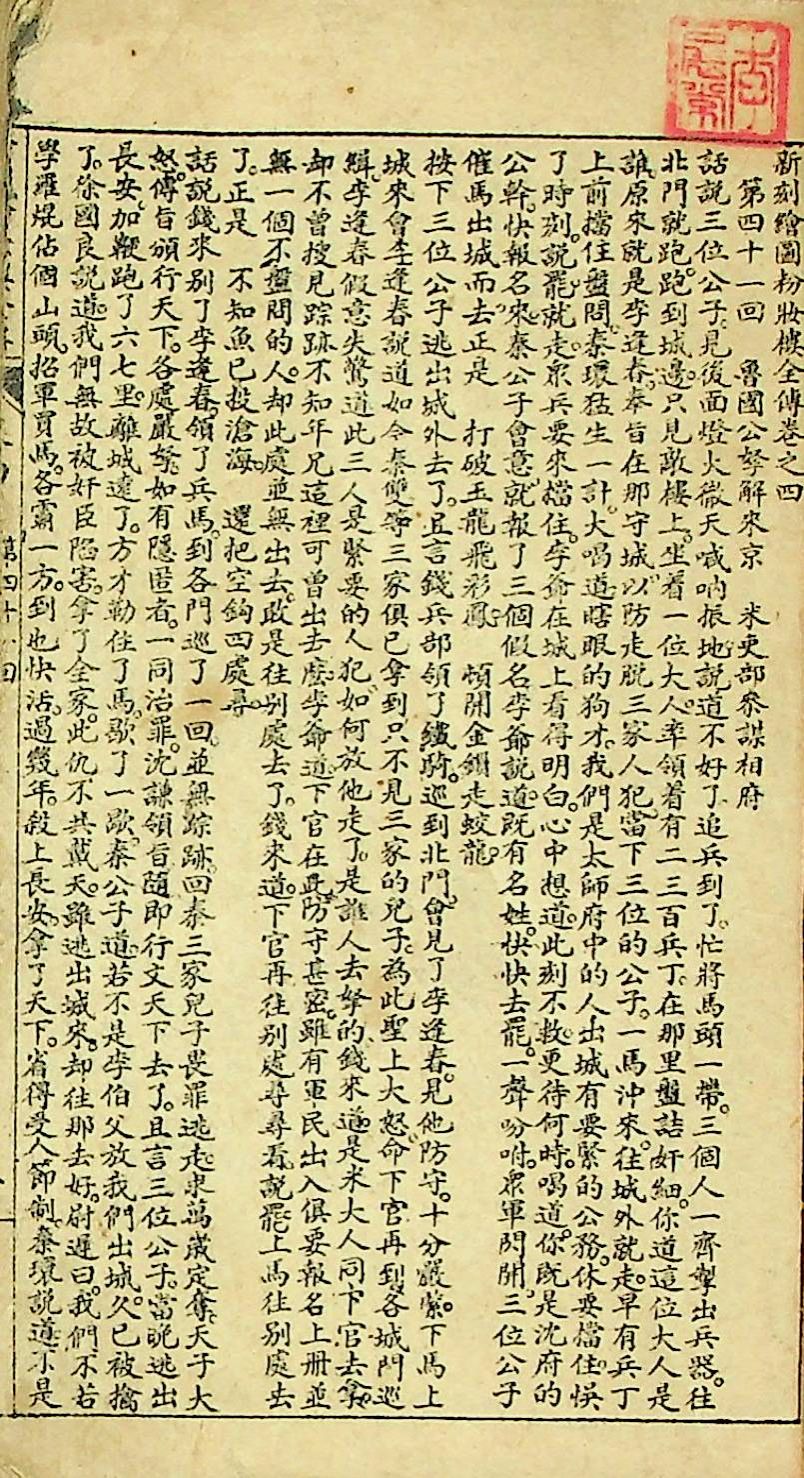 新刻繪圖粉妝樓全傳卷之四
第四十一回 魯國公拏解來京 米吏部參謀相府
話說三位公子。見後面燈火徹天喊吶振地。說道不好了追兵到了。忙將馬頭一帶。三個人一齊掣出兵器。往
北門就跑。跑到城邊。只見敵樓上。坐着一位大人。率領着有二三百兵丁。在那里盤詰奸細。你道這位大人是
誰。原來就是李逢春。奉旨在那守城。以防走脫三家人犯。當下三位的公子。一馬沖來。往城外就走。早有兵丁
上前擋住盤問。秦環猛生一計。大喝道。瞎眼的狗才。我們是太師府中的人出城有要緊的公務。休要擋住。悞
了時刻。說罷就走。衆兵要來擋住。李爺在城上看得明白。心中想道。此刻不救。更待何時。喝道。你既是沈府的
公幹。快報名來。秦公子會意。就報了三個假名。李爺說道。既有名姓。快快去罷。一聲吩咐。衆軍閃開。三位公子
催馬出城而去。正是 打破玉龍飛彩鳳。 頓開金鎖走蛟龍。
按下三位公子逃出城外去了。且言錢兵部領了鐵騎。巡到北門。會見了李逢春。見他防守。十分嚴緊。下馬上
城來會李逢春說道如今秦雙等三家俱已拿到只不見三家的兒子。為此聖上大怒。命下官再到各城門巡
緝。李逢春假意失驚道此三人是緊要的人犯。如何放他走了。是誰人去拏的。錢來道。是米大人同卞官去拿。
却不曾搜見踪跡不知年兄這裡可曾出去麽。李爺道。下官在此。防守甚密。雖有軍民出入俱要報名上冊並
無一個不盤問的人。却此處並無出去。敢是往別處去了。錢來道。下官再往別處尋尋看。說罷上馬往別處去
了。正是 不知魚已投滄海。 還把空鈎四處尋。
話說錢來別了李逢春。領了兵馬。到各門巡了一回。並無踪跡。回奏三家兒子畏罪逃走。求萬歲定奪。天子大
怒。傳旨頒行天下。各處嚴拏。如有隱匿者。一同治罪。沈謙領旨隨即行文天下去了。且言三位公子。當晚逃出
長安。加鞭跑了六七里。離城遠了。方才勒住了馬。歇了一歇。秦公子道。若不是李伯父放我們出城。久已被擒
了。徐國良說道。我們無故被奸臣陷害。拿了全家。此仇不共戴天。雖逃出城來。却往那去好。尉遲曰。我們不若
學羅焜佔個山頭。招軍買馬。各霸一方。到也快活。過幾年。殺上長安。拿了天下。省得受人節制。秦環說道。不是
第四十一回